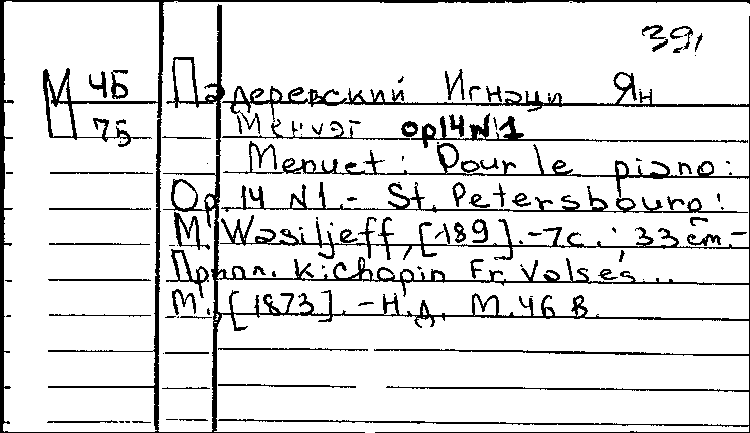 39,
М 4Б Падеревский Игнаци Ян
П 75 Менуэт op14N1
Menuet: Pour le piano:
Op. 14 N1.- St. Petersbourg:
M. Wasiljeff, [189 ].-7c.; 33 cm.-
Прилл. к: Chopin Fr. Valses...
М., [1873]. -Н.д. М.46 В.